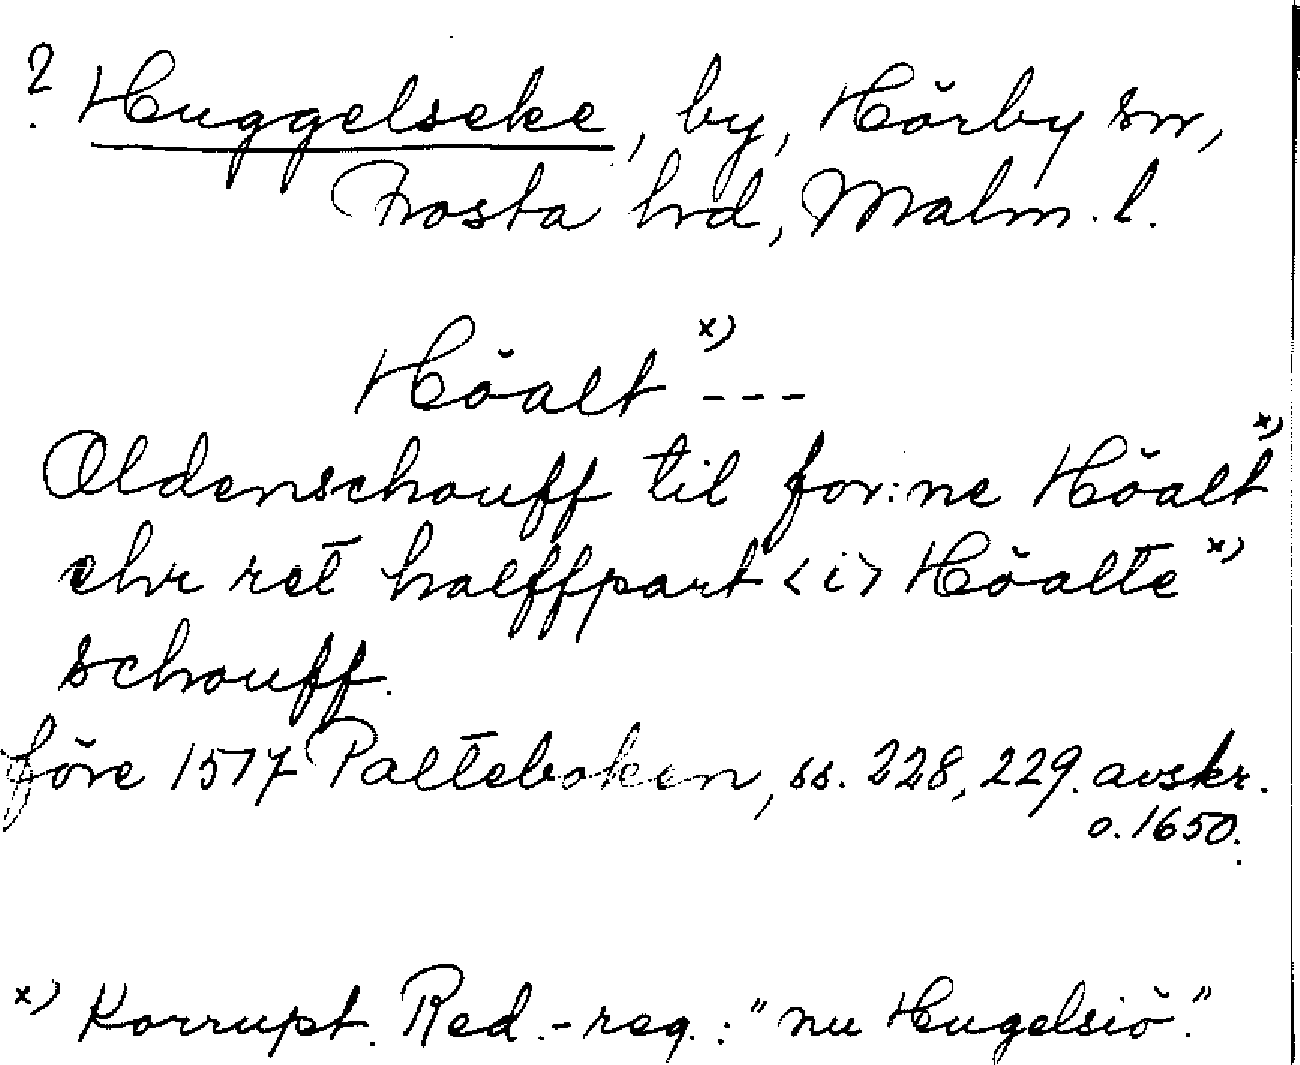 ? Huggelseke, by, Hörby sn,
Frosta hd, Malm. l.
Höalt x) ---
Oldenschouff til for:ne Höalt x)
ehr ret halffpart <i> Höalte x)
schouff.
före 1517 Palteboken, ss. 228, 229. avskr.
o. 1650.
x) Korrupt. Red.-reg.: "nu Hugelsiö."